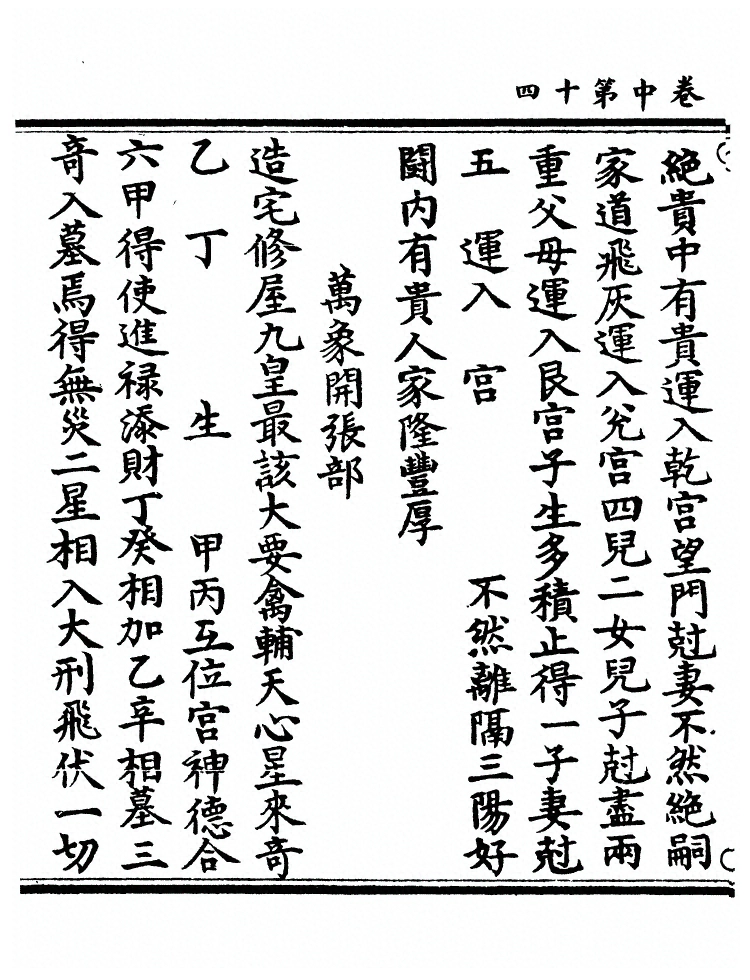 卷中第十四
絕貴中有貴運入乾宮望門尅妻不然絕嗣
家道飛灰運入兊宮四兒二女兒子尅盡兩
重父母運入艮宮子生多積止得一子妻尅
五運入宮不然離隔三陽好
闘内有貴人家隆豐厚
萬象開張部
造宅修屋九皇最該大要禽輔天心星來竒
乙丁生甲丙互位宮神德合
六甲得使進禄添財丁癸相加乙辛相墓三
竒入墓焉得無災二星相入大刑飛伏一切